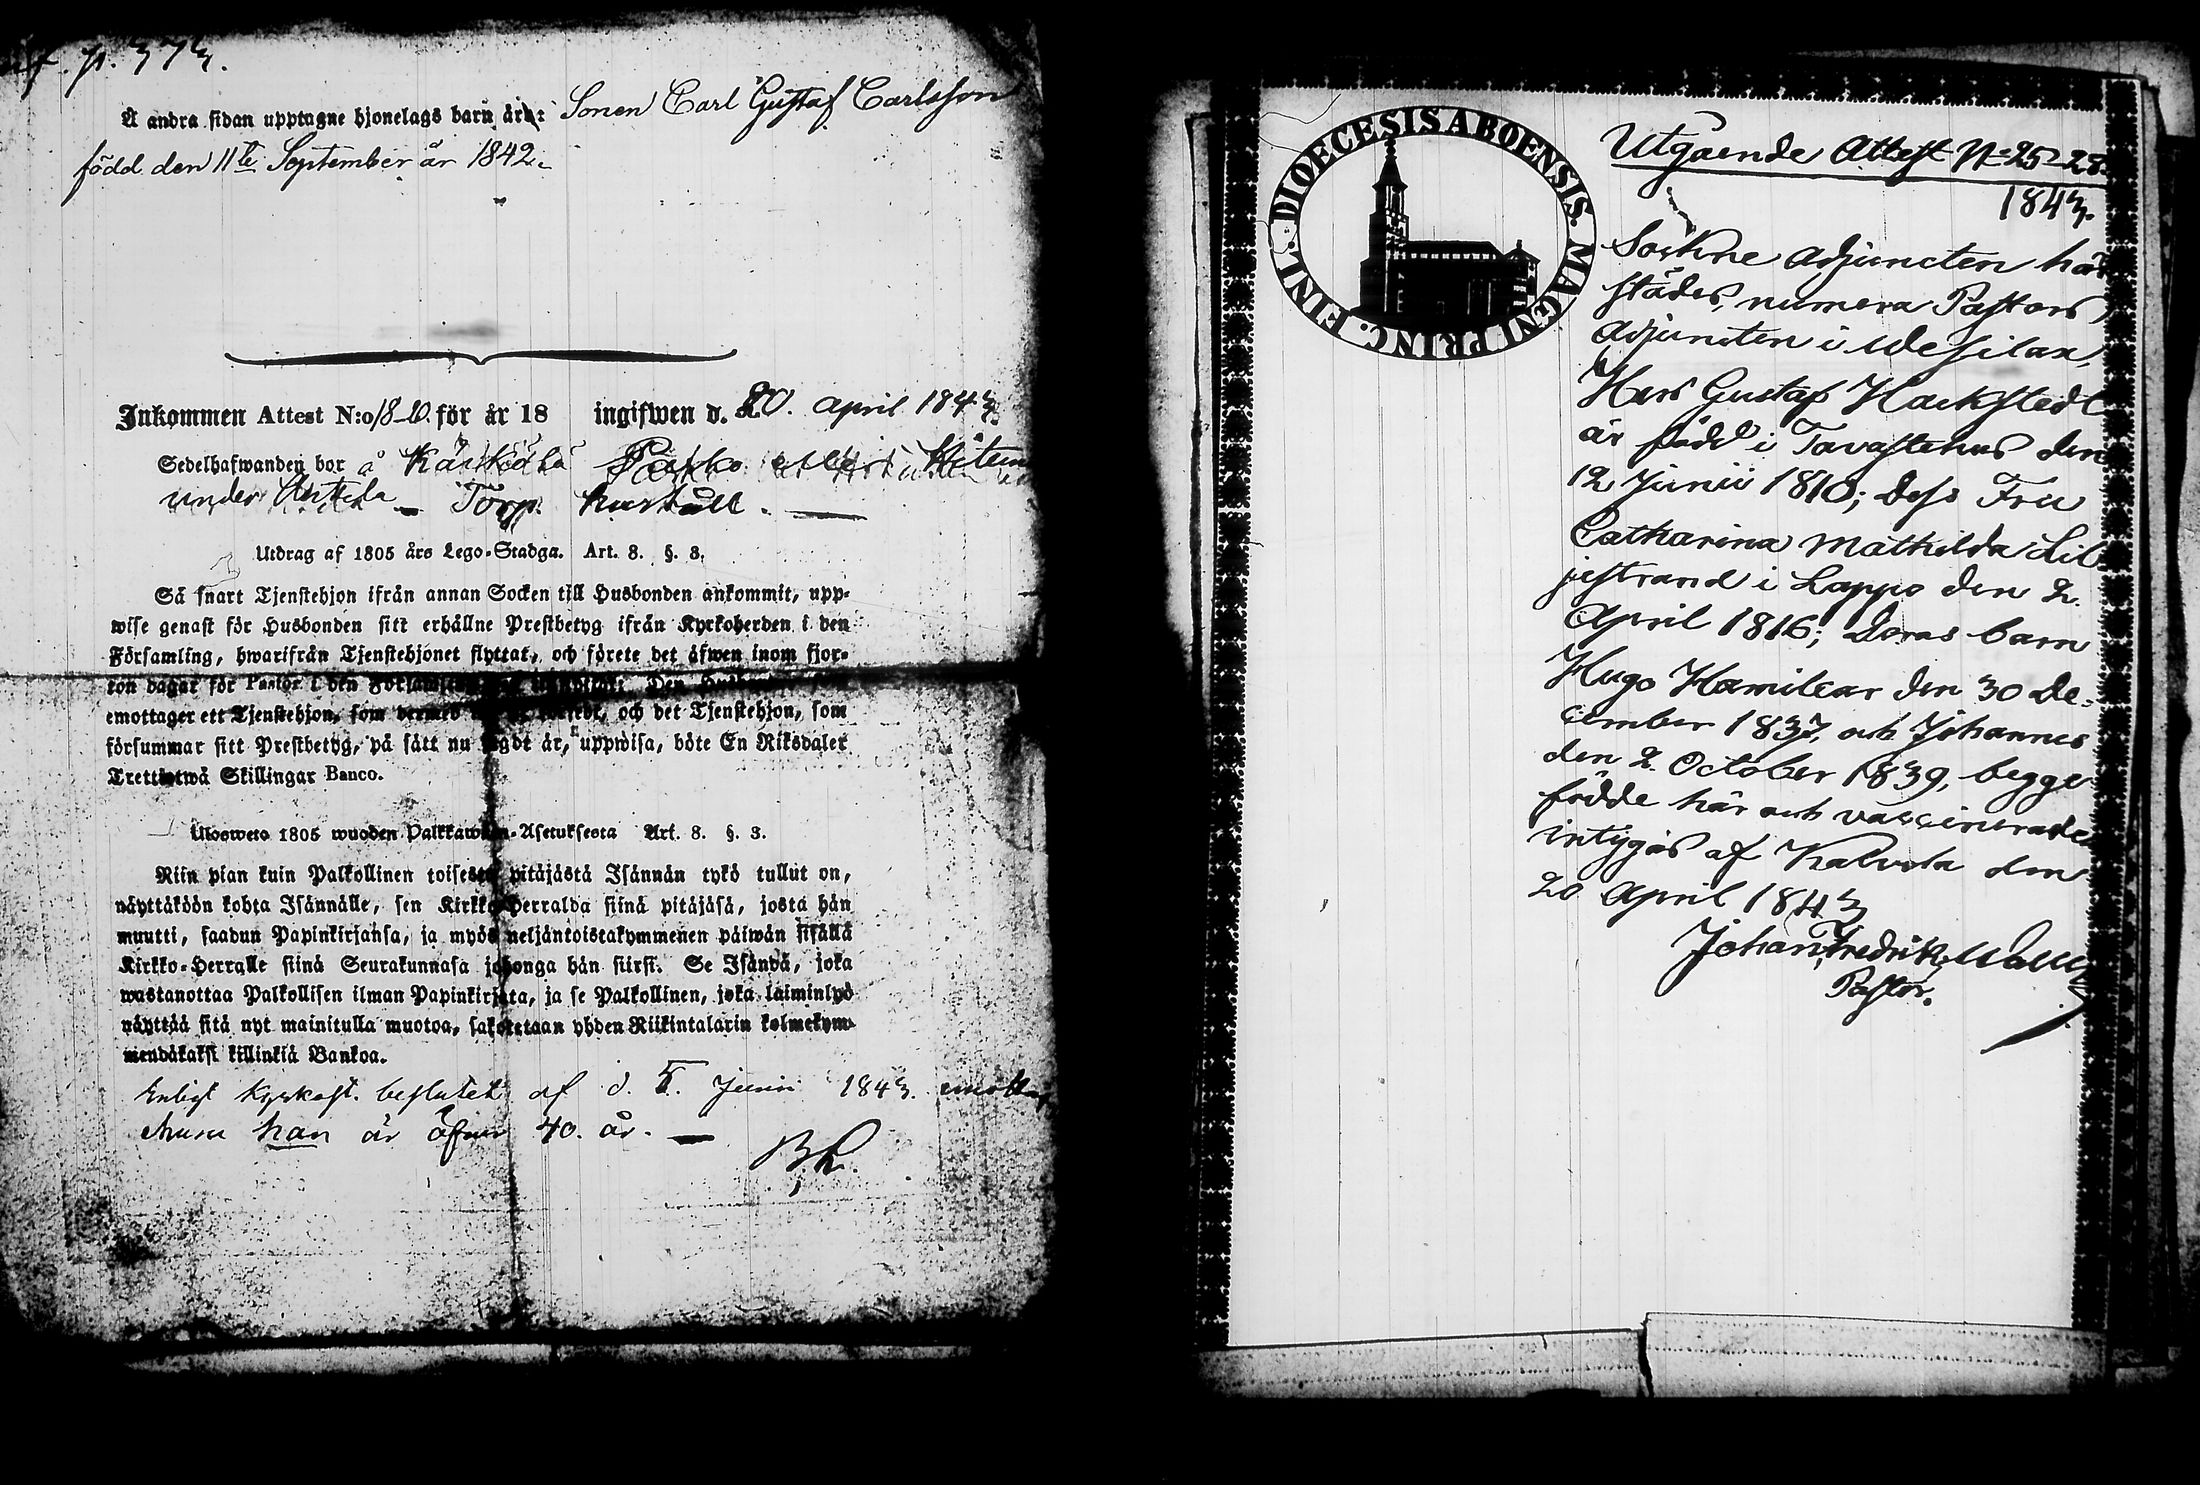 p. 373.
Å andra sidan upptagne hjonelags barn äro: Sonen Carl Gustaf Carlsson
född den 11te September år 1842.
Inkommen Attest N:o 18-20. för år 18 ingifwen d. 20. April 1843.
Sedelhafwanden bor å
under Torp.
Utdrag af 1805 års Lego-Stadga. Art. 8. §. 3.
Så snart Tjenstehjon ifrån annan Socken till Husbonden ankommit, upp-
wise genast för Husbonden sitt erhållne Prestbetyg ifrån Kyrkoherden i den
Församling, hwarifrån Tjenstehjonet flyttat, och förete det äfwen inom fjor-
ton dagar för Pastor i den
emottager ett Tjenstehjon, som dermed och det Tjenstehjon, som
försummar sitt Prestbetyg, på sätt nu sagdt är, uppwisa, böte En Riksdaler
Trettiotwå Skillingar Banco.
Ulosweto 1805 wuoden Palkkawäen-Asetuksesta Art. 8. §. 3.
Niin pian kuin Palkollinen toisesta pitäjästä Isännän tykö tullut on,
näyttäköön kohta Isännälle, sen Kirkko-Herralda siinä pitäjäsä, josta hän
muutti, saadun Papinkirjansa, ja myös neljäntoistakymmenen päiwän sisällä
Kirkko-Herralle siinä Seurakunnasa johonga hän siirsi. Se Isändä, joka
wastanottaa Palkollisen ilman Papinkirjata, ja se Palkollinen, joka laiminlyö
näyttää sitä nyt mainitulla muotoa, sakotetaan yhden Riikintalarin kolmekym-
mendäkaksi killinkiä Bankoa.
Enligt Kyrkost. beslutet af d. 5. Junii 1843.
han är öfver 40. år.
DIOECESIS ABOENSIS. MAGNI PRINC. FINL.
Utgående Attest No 25-28.
1843.
Sockne Adjuncten här
städes, numera Pastors
Adjuncten i Wesilax,
Herr Gustaf Hackstedt
är född i Tavastehus den
12 Junii 1810; dess Fru
Catharina Mathilda Lil-
jestrand i Lappo den 2.
April 1816; deras barn
Hugo Hamilcar den 30 De-
cember 1837, och Johannes
den 2. October 1839, begge
födde här och vaccinerade
intygas af Kalvola den
20 April 1843
Johan Fredrik
Pastor.